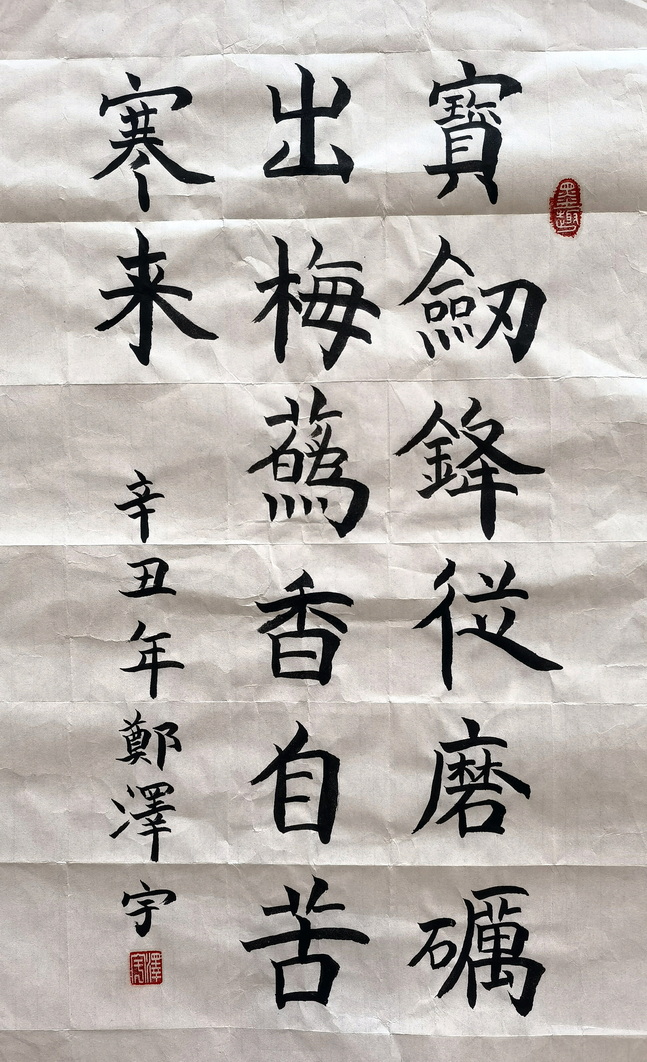 墨趣
寶劒鋒従磨礪
出梅蘤香自苦
寒来
辛丑年鄭澤宇
澤宇